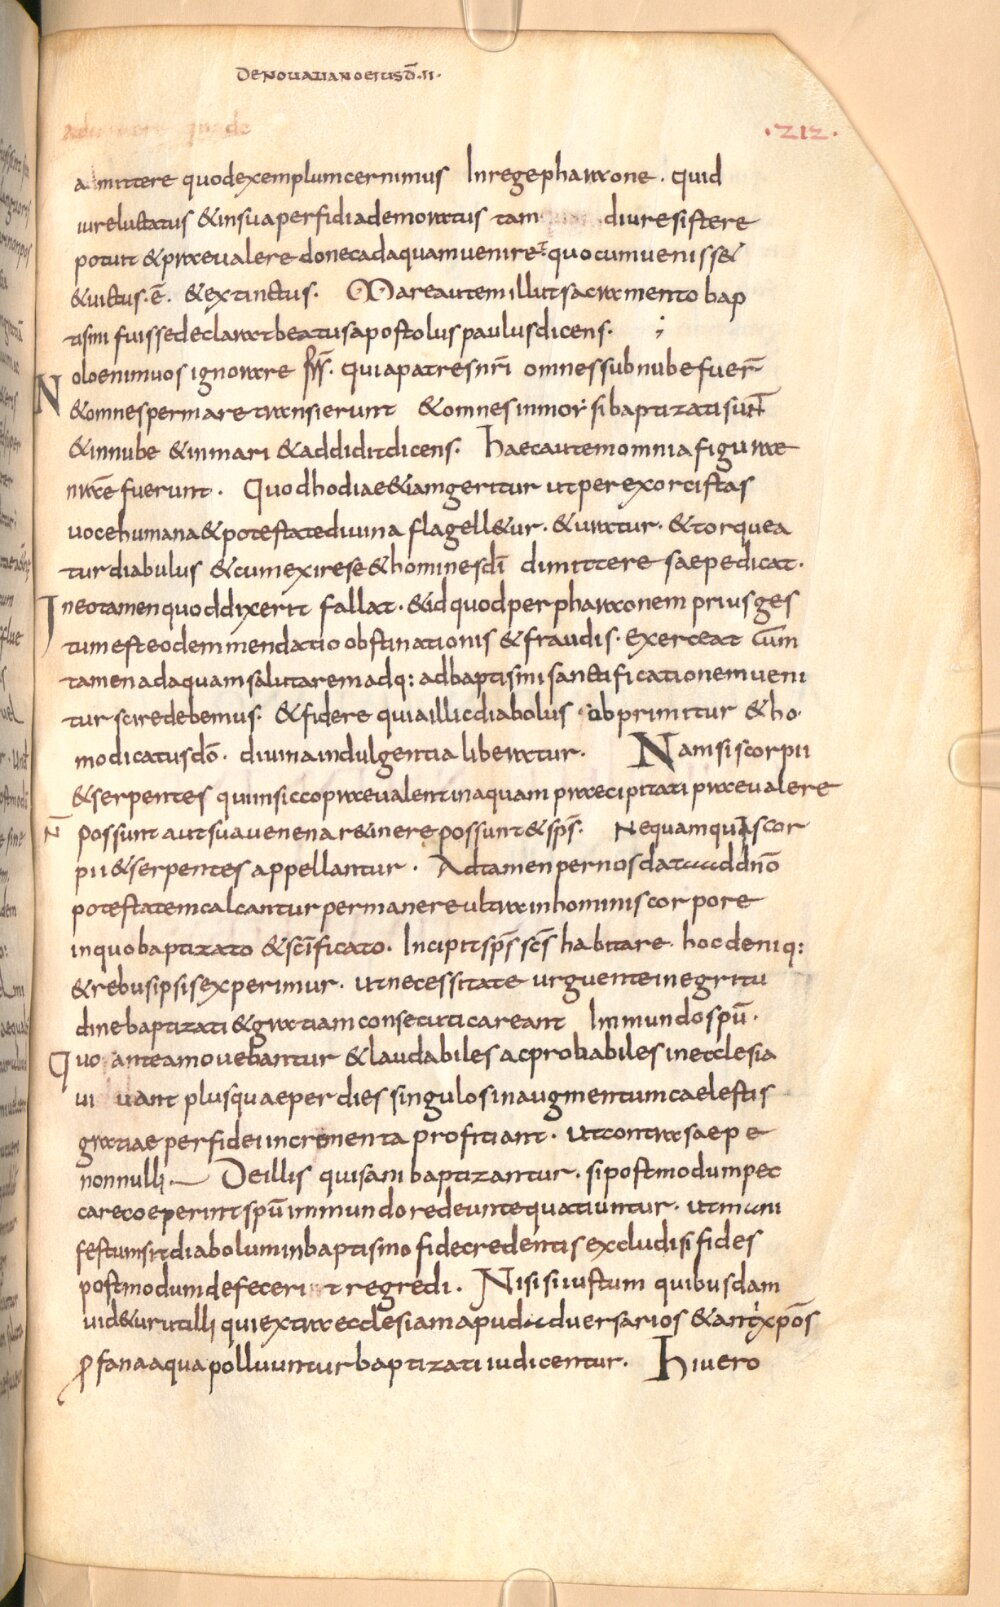 DE NOVATIANO EIUSD̄·II·
·212·
amittere quod exemplum cernimus In rege pharaone. quid
iureluctatus & in sua perfidia demoratus tam diu resistere
potuit & praevalere donec ad aquam veniret quo cum venisse&
& victus·ē· & extinctus. Mare autem illut sacramento bap
tismi fuisse declarat beatus apostolus paulus dicens. ;
Nolo enim vos ignorare frs̄. quia patres nr̄i omnes sub nube fuer̄
& omnes per mare transierunt & omnes in morsi baptizati sunt
& in nube & in mari & addidit dicens. Haec autem omnia figurae
nrāe fuerunt. Quod hodiae &iam geritur ut per exorcistas
voce humana & potestate divina flagell&ur· & uratur· & torquea
tur diabulus & cum exire se & homines dī dimittere saepe dicat·
In eo tamen quod dixerit fallat· & id quod per pharaonem prius ges
tum est eodem mendatio obstinationis & fraudis· exerceat Cum
tamen ad aquam salutarem adq: ad baptismi sanctificationem veni
tur scire debemus. & fidere quia illic diabolus obprimitur & ho·
modicatus dō. divina indulgentia liberatur. Nam si scorpii
& serpentes qui in sicco praevalent in aquam praecipitati praevalere
n̄ possunt aut sua venena r&inere possunt & sps̄. Nequam quas cor
pii & serpentes appellantur. Adtamen per nos dat ad dn̄o
potestatem calcantur permanere ultra in hominis corpore
in quo baptizato & scīficato. Incipit sps̄ scs̄ habitare. hoc deniq:
& rebus ipsis experimur. ut necessitate urguente in egritu
dine baptizati & gratiam consecuti careant Immundo spū.
Quo ante amovebantur & laudabiles ac probabiles in ecclesia
ui vant plusquae per dies singulos in augmentum caelestis
gratiae per fidei incrementa profitiant. Ut contra saepe
nonnulli. De illis qui sani baptizantur. si postmodum pec
care coeperint spū immundo redeunte quatiuntur. ut mani
festum sit diabolum in baptismo fide credentis excludi si fides
postmodum defecerit regredi. Nisi si iustum quibusdam
vid&ur ut illi qui extra ecclesiam apud adversarios & antixpōs
profana aqua polluuntur baptizati iudicentur. Hi vero